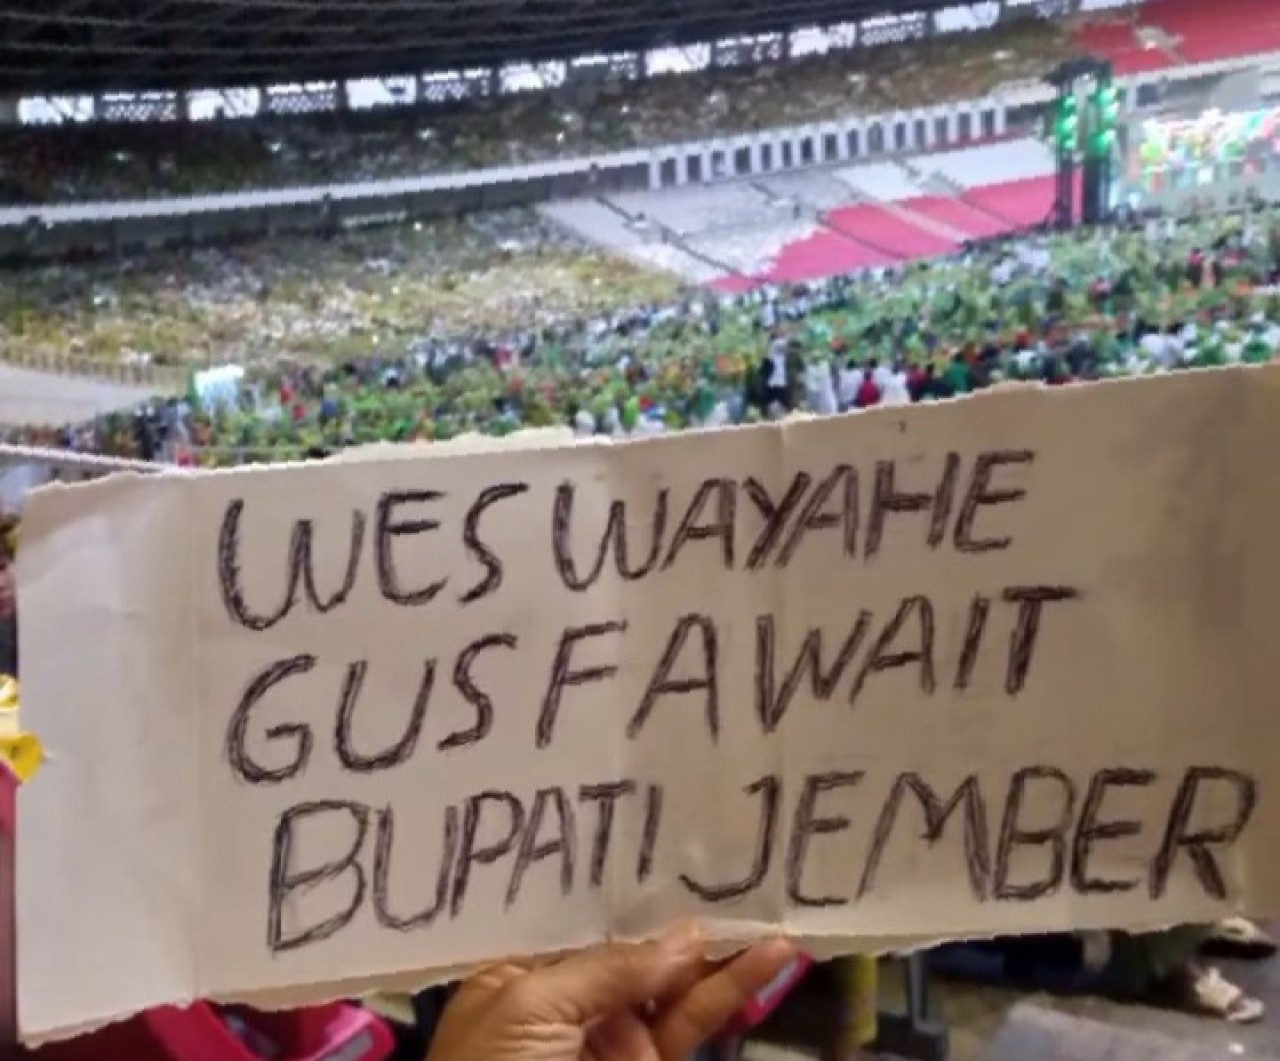 WES WAYAHE
GUS FAWAIT
BUPATI JEMBER